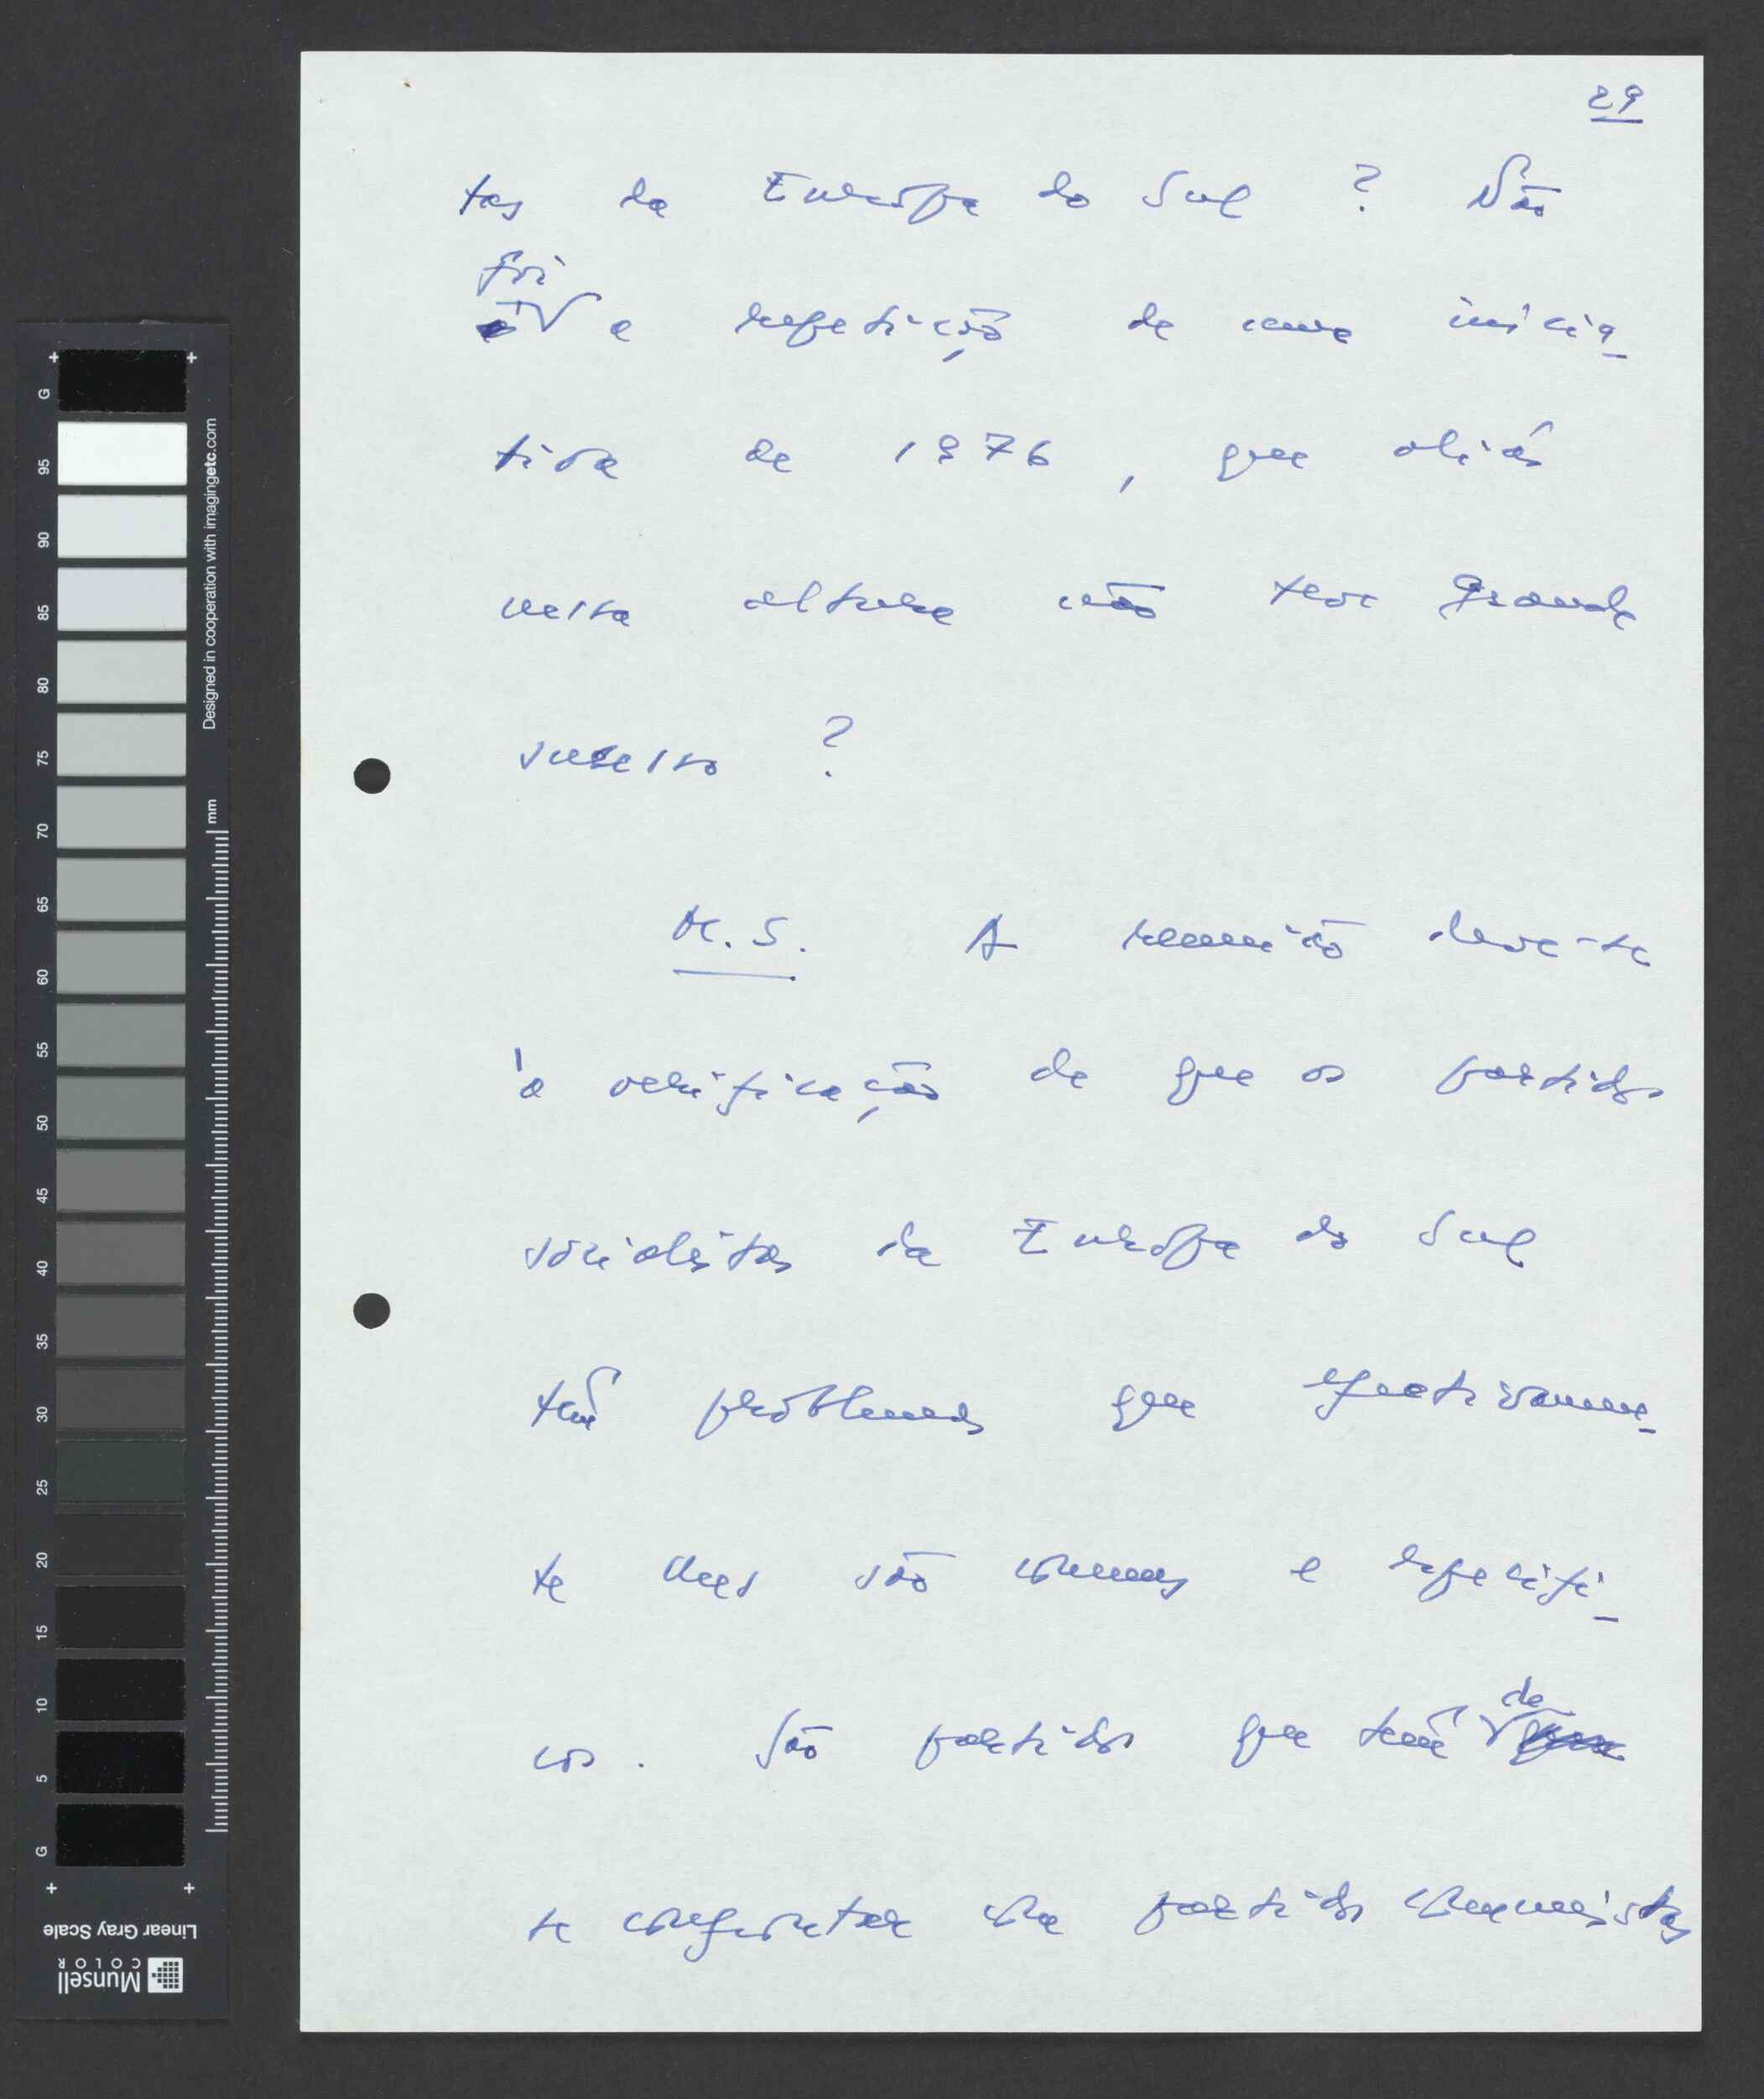 29
tas da Europa do Sul ? Não
foi
é a repetição de uma inicia-
tiva de 1976, que aliás
nessa altura não teve grande
sucesso ?
M.S. A reunião deve-se
à verificação de que os partidos
socialistas da Europa do Sul
têm problemas que efectivamen-
te lhes são comuns e especifi-
cos. São partidos que têm de
se confrontar com partidos comunistas
G
95
90
85
80
75
70
65
60
55
50
45
40
35
30
25
20
15
10
5
G
Designed in cooperation with imagingetc.com
mm
Linear Gray Scale
Munsell
COLOR